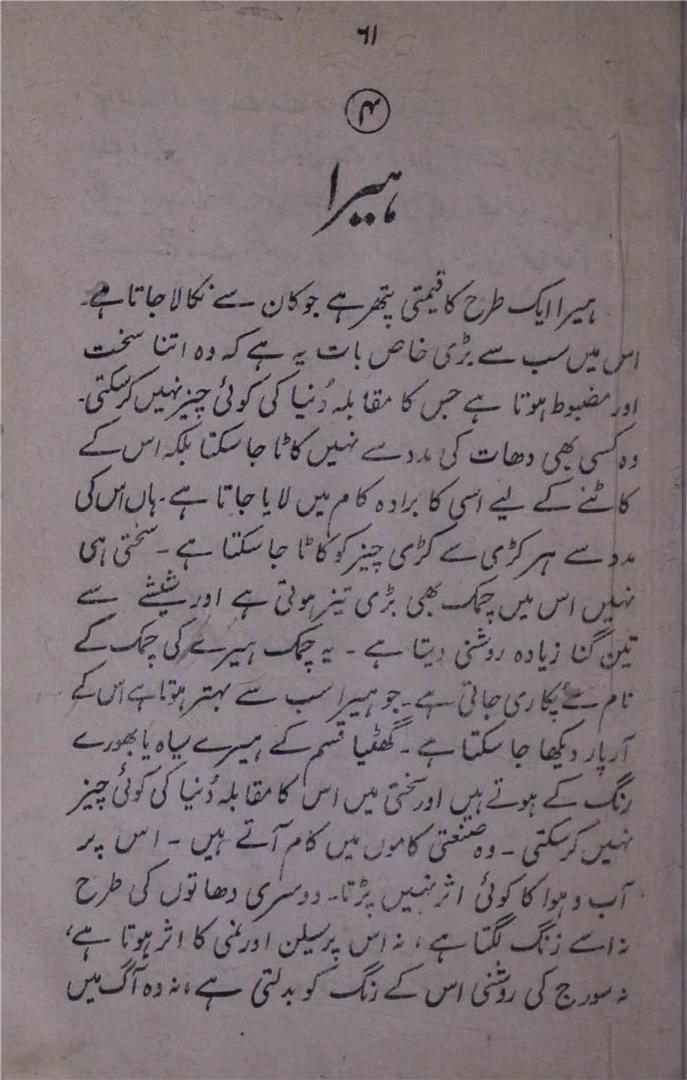 ۶۱
۴
ہیرا
ہیرا ایک طرح کا قیمتی پتھر ہے جو کان سے نکالا جاتا ہے۔
اس میں سب سے بڑی خاص بات یہ ہے کہ وہ اتنا سخت
اور مضبوط ہوتا ہے جس کا مقابلہ دُنیا کی کوئی چیز نہیں کرسکتی۔
وہ کسی بھی دھات کی مدد سے نہیں کاٹا جا سکتا بلکہ اس کے
کاٹنے کے لیے اسی کا برادہ کام میں لایا جاتا ہے۔ ہاں اس کی
مدد سے ہر کڑی سے کڑی چیز کو کاٹا جا سکتا ہے۔ سختی ہی
نہیں اس میں چمک بھی بڑی تیز ہوتی ہے اور شیشے سے
تین گنا زیادہ روشنی دیتا ہے۔ یہ چمک ہیرے کی چمک کے
نام سے پکاری جاتی ہے۔ جو ہیرا سب سے بہتر ہوتا ہے اس کے
آرپار دیکھا جا سکتا ہے۔ گھٹیا قسم کے ہیرے سیاہ یا بھورے
رنگ کے ہوتے ہیں اور سختی میں اس کا مقابلہ دُنیا کی کوئی چیز
نہیں کرسکتی۔ وہ صنعتی کاموں میں کام آتے ہیں۔ اس پر
آب و ہوا کا کوئی اثر نہیں پڑتا۔ دوسری دھاتوں کی طرح
نہ اسے زنگ لگتا ہے، نہ اس پر سیلن اور نمی کا اثر ہوتا ہے،
نہ سورج کی روشنی اس کے رنگ کو بدلتی ہے، نہ وہ آگ میں